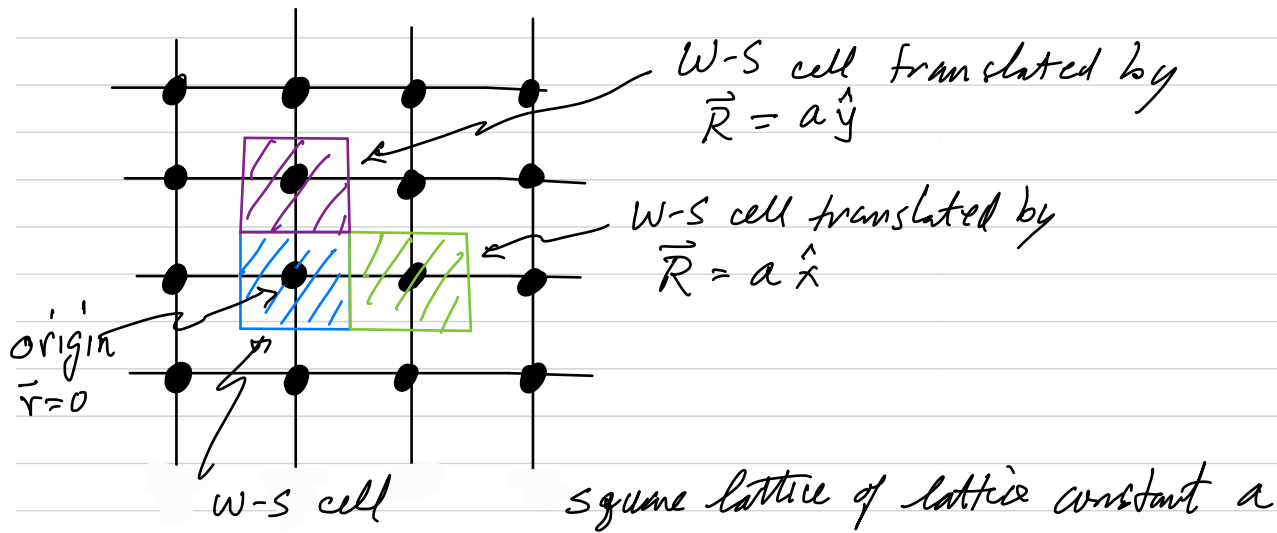 W-S cell translated by
R⃗ = a ŷ
W-S cell translated by
R⃗ = a x̂
origin
r⃗=0
W-S cell
square lattice of lattice constant a